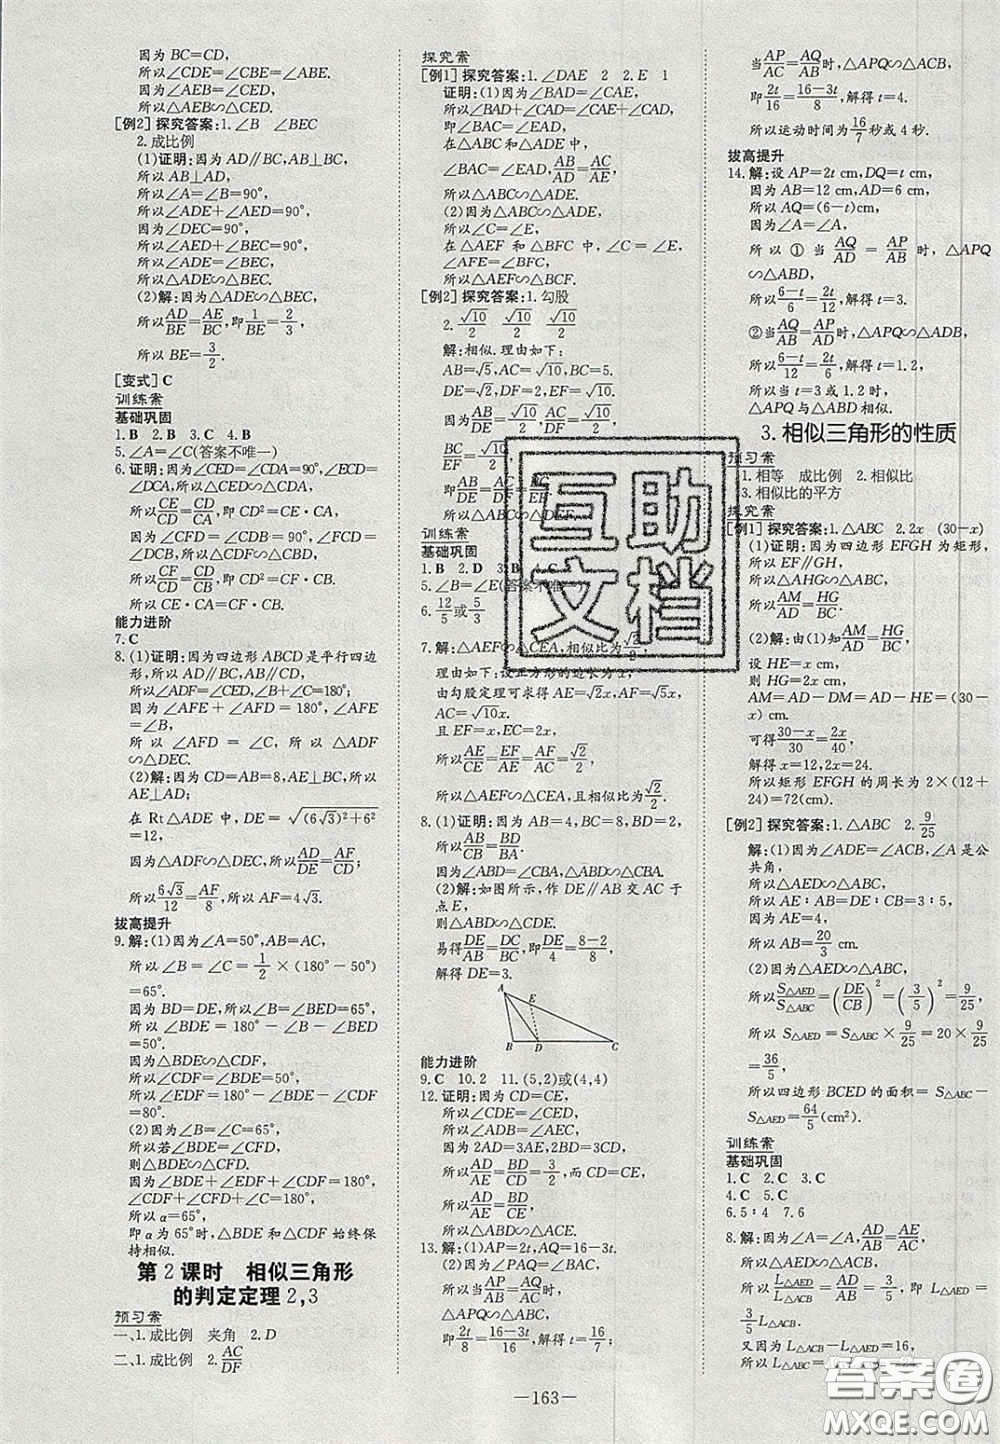 因为BC=CD,
所以∠CDE=∠CBE=∠ABE.
因为∠AEB=∠CED,
所以△AEB∽△CED.
[例2] 探究答案:1.∠B ∠BEC
2.成比例
(1)证明:因为AD∥BC,AB⊥BC,
所以AB⊥AD,
所以∠A=∠B=90°,
所以∠ADE+∠AED=90°,
因为∠DEC=90°,
所以∠AED+∠BEC=90°,
所以∠ADE=∠BEC,
所以△ADE∽△BEC.
(2)解:因为△ADE∽△BEC,
所以AD/BE=AE/BC,即1/BE=2/3,
所以BE=3/2.
[变式] C
训练案
基础巩固
1.B 2.B 3.C 4.B
5.∠A=∠C(答案不唯一)
6.证明:因为∠CED=∠CDA=90°,∠ECD
=∠DCA,所以△CED∽△CDA,
所以CE/CD=CD/CA,即CD²=CE·CA.
因为∠CFD=∠CDB=90°,∠FCD=
∠DCB,所以△FCD∽△DCB,
所以CF/CD=CD/CB,即CD²=CF·CB.
所以CE·CA=CF·CB.
能力进阶
7.C
8.(1)证明:因为四边形ABCD是平行四边
形,所以AD∥BC,AB∥CD,
所以∠ADF=∠CED,∠B+∠C=180°;
因为∠AFE+∠AFD=180°,∠AFE
=∠B,
所以∠AFD=∠C,所以△ADF
∽△DEC.
(2)解:因为CD=AB=8,AE⊥BC,所以
AE⊥AD;
在Rt△ADE中,DE=√((6√3)²+6²)
=12,
因为△ADF∽△DEC,所以AD/DE=AF/CD;
所以6√3/12=AF/8,所以AF=4√3.
拔高提升
9.解:(1)因为∠A=50°,AB=AC,
所以∠B=∠C=1/2×(180°-50°)
=65°.
因为BD=DE,所以∠B=∠BED=65°,
所以∠BDE=180°-∠B-∠BED
=50°.
因为△BDE∽△CDF,
所以∠BDE=∠CDF=50°,
所以∠EDF=180°-∠BDE-
∠CDF=80°.
(2)因为∠B=∠C=65°,
所以若∠BDE=∠CFD,
则△BDE∽△CFD.
因为∠BDE+∠EDF+∠CDF=180°,
∠CDF+∠CFD+∠C=180°,
所以α=65°,
即α为65°时,△BDE和△CDF始终保
持相似.
第2课时 相似三角形
的判定定理2,3
预习案
一、1.成比例 夹角 2.D
二、1.成比例 2.AC/DF
探究案
[例1] 探究答案:1.∠DAE 2 2.E 1
证明:(1)因为∠BAD=∠CAE,
所以∠BAD+∠CAD=∠CAE+∠CAD,
即∠BAC=∠EAD,
在△ABC和△ADE中,
∠BAC=∠EAD,AB/AD=AC/AE,
所以△ABC∽△ADE.
(2)因为△ABC∽△ADE,
所以∠C=∠E,
在△AEF和△BFC中,∠C=∠E,
∠AFE=∠BFC,
所以△AEF∽△BCF.
[例2] 探究答案:1.勾股
2.√10/2 √10/2 √10/2
解:相似.理由如下:
AB=√5,AC=√10,BC=5.
DE=√2,DF=2,EF=√10.
因为AB/DE=√10/2,AC/DF=√10/2,
BC/EF=√10/2,
即AB/DE=AC/DF=BC/EF,
所以△ABC∽△DEF.
训练案
基础巩固
1.B 2.D 3.B 4.C
5.∠B=∠E(答案不唯一)
6.12/5或5/3
7.解:△AEF∽△CEA,相似比为√2/2.
理由如下:设正方形的边长为x,
由勾股定理可求得AE=√2x,AF=√5x,
AC=√10x.
且EF=x,EC=2x,
所以AE/CE=EF/AE=AF/AC=√2/2
所以△AEF∽△CEA,且相似比为√2/2.
8.(1)证明:因为AB=4,BC=8,BD=2;
所以AB/CB=BD/BA.
因为∠ABD=∠CBA,
所以△ABD∽△CBA.
(2)解:如图所示,作DE∥AB交AC于
点E,
则△ABD∽△CDE.
易得DE/AB=DC/BC,即DE/4=8-2/8,
解得DE=3.
A
E
B D C
能力进阶
9.C 10.2 11.(5,2)或(4,4)
12.证明:因为CD=CE,
所以∠CDE=∠CED,
所以∠ADB=∠AEC,
因为2AD=3AE,2BD=3CE,
所以AD/AE=BD/CD=3/2.因为CD=CE,
所以AD/AE=BD/CE,
所以△ABD∽△ACE.
13.解:(1)AP=2t,AQ=16-3t.
(2)因为∠PAQ=∠BAC,
所以当AP/AB=AQ/AC时,△APQ∽△ABC,
即2t/8=16-3t/16,解得t=16/7;
当AP/AC=AQ/AB时,△APQ∽△ACB,
即2t/16=16-3t/8,解得t=4.
所以运动时间为16/7秒或4秒.
拔高提升
14.解:设AP=2t cm,DQ=t cm,
因为AB=12 cm,AD=6 cm,
所以AQ=(6-t)cm,
因为∠A=∠A,
所以①当AQ/AD=AP/AB时,△APQ
∽△ABD,
所以6-t/6=2t/12,解得t=3.
②当AQ/AB=AP/AD时,△APQ∽△ADB,
所以6-t/12=2t/6,解得t=1.2,
所以当t=3或1.2时,
△APQ与△ABD相似.
3.相似三角形的性质
预习案
1.相等 成比例 2.相似比
3.相似比的平方
探究案
[例1] 探究答案:1.△ABC 2.2x (30-x)
(1)证明:因为四边形EFGH为矩形,
所以EF∥GH,
所以△AHG∽△ABC,
所以AM/AD=HG/BC.
(2)解:由(1)知AM/AD=HG/BC,
设HE=x,
则HG=2x,
AM=AD-DM=AD-HE=(30-
x)cm.
可得30-x/30=2x/40,
解得x=12,2x=24.
所以矩形EFGH的周长为2×(12+
24)=72(cm).
[例2] 探究答案:1.△ABC 2.9/25
解:(1)因为∠ADE=∠ACB,∠A是公
共角,
所以△ADE∽△ABC,
所以AE∶AB=DE∶CB=3∶5,
因为AE=4,
所以AB=20/3 cm.
(2)因为△ADE∽△ABC,
所以S△AED/S△ABC=(DE/CB)²=(3/5)²=9/25,
所以S△AED=S△ABC×9/25=20×9/25=
36/5,
所以四边形BCED的面积=S△ABC-
S△AED=64/5(cm²).
训练案
基础巩固
1.C 2.C 3.C
4.C 5.C
6.5∶4 7.6
8.解:因为∠A=∠A,AD/AB=AE/AC,
所以△AED∽△ACB,
所以L△AED/L△ACB=AD/AB=3/5,即L△AED=
3/5L△ACB.
又因为L△ACB-L△AED=16,
所以L△
-163-
互助
文档
答案卷
MXQE.COM